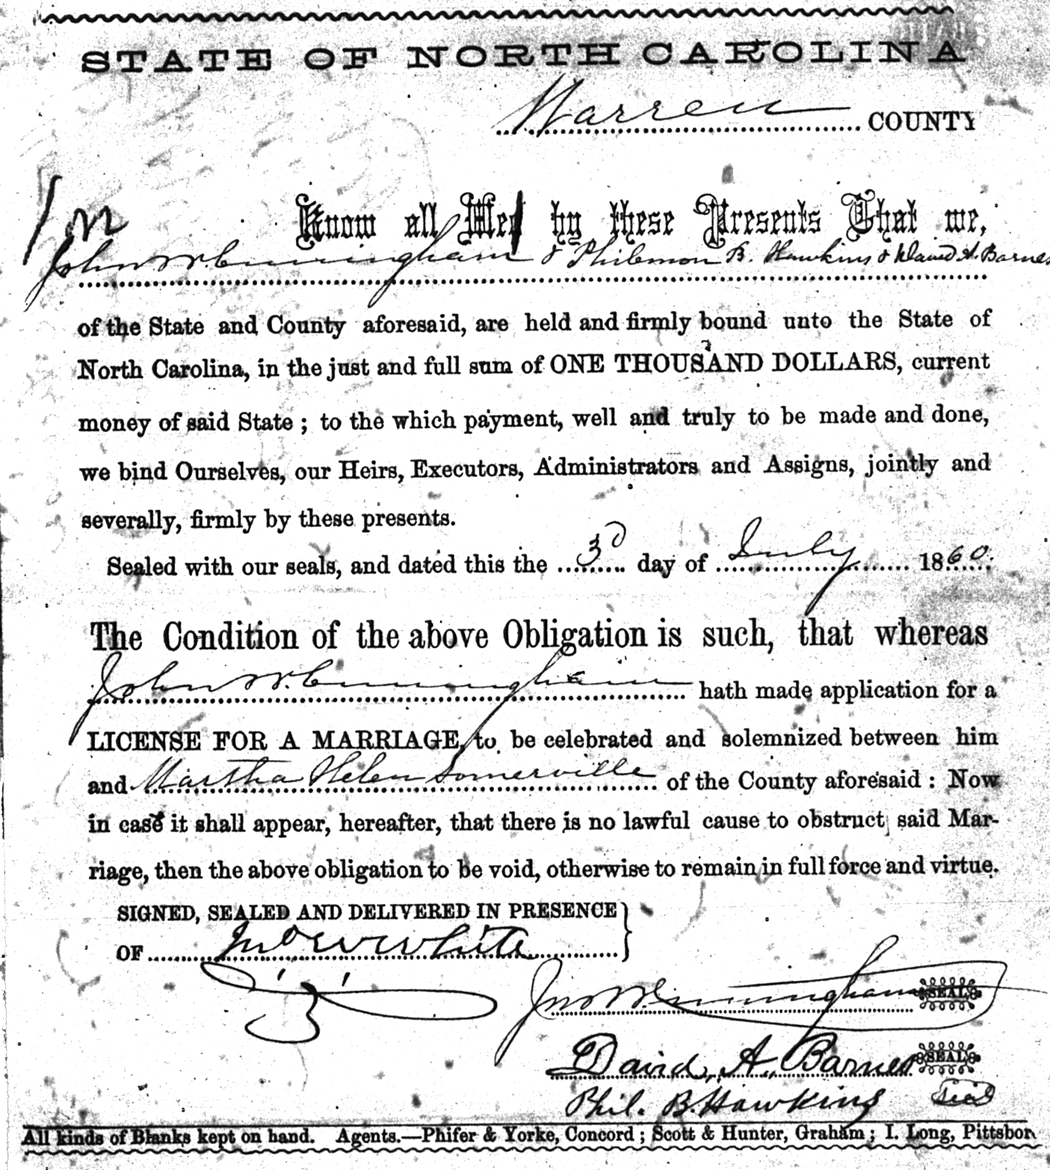 STATE OF NORTH CAROLINA
Warren COUNTY
Know all Men by these Presents That we,
John W. Cunningham & Philemon B. Hawkins & David A. Barnes
of the State and County aforesaid, are held and firmly bound unto the State of
North Carolina, in the just and full sum of ONE THOUSAND DOLLARS, current
money of said State; to the which payment, well and truly to be made and done,
we bind Ourselves, our Heirs, Executors, Administrators and Assigns, jointly and
severally, firmly by these presents.
Sealed with our seals, and dated this the 3d day of July 1860
The Condition of the above Obligation is such, that whereas
John W. Cunningham hath made application for a
LICENSE FOR A MARRIAGE, to be celebrated and solemnized between him
and Martha Helen Somerville of the County aforesaid: Now
in case it shall appear, hereafter, that there is no lawful cause to obstruct said Mar-
riage, then the above obligation to be void, otherwise to remain in full force and virtue.
SIGNED, SEALED AND DELIVERED IN PRESENCE
OF Jno W White
Jno W Cunningham SEAL
David A. Barnes SEAL
Phil. B. Hawkins Seal
All kinds of Blanks kept on hand. Agents.—Phifer & Yorke, Concord; Scott & Hunter, Graham; I. Long, Pittsbor